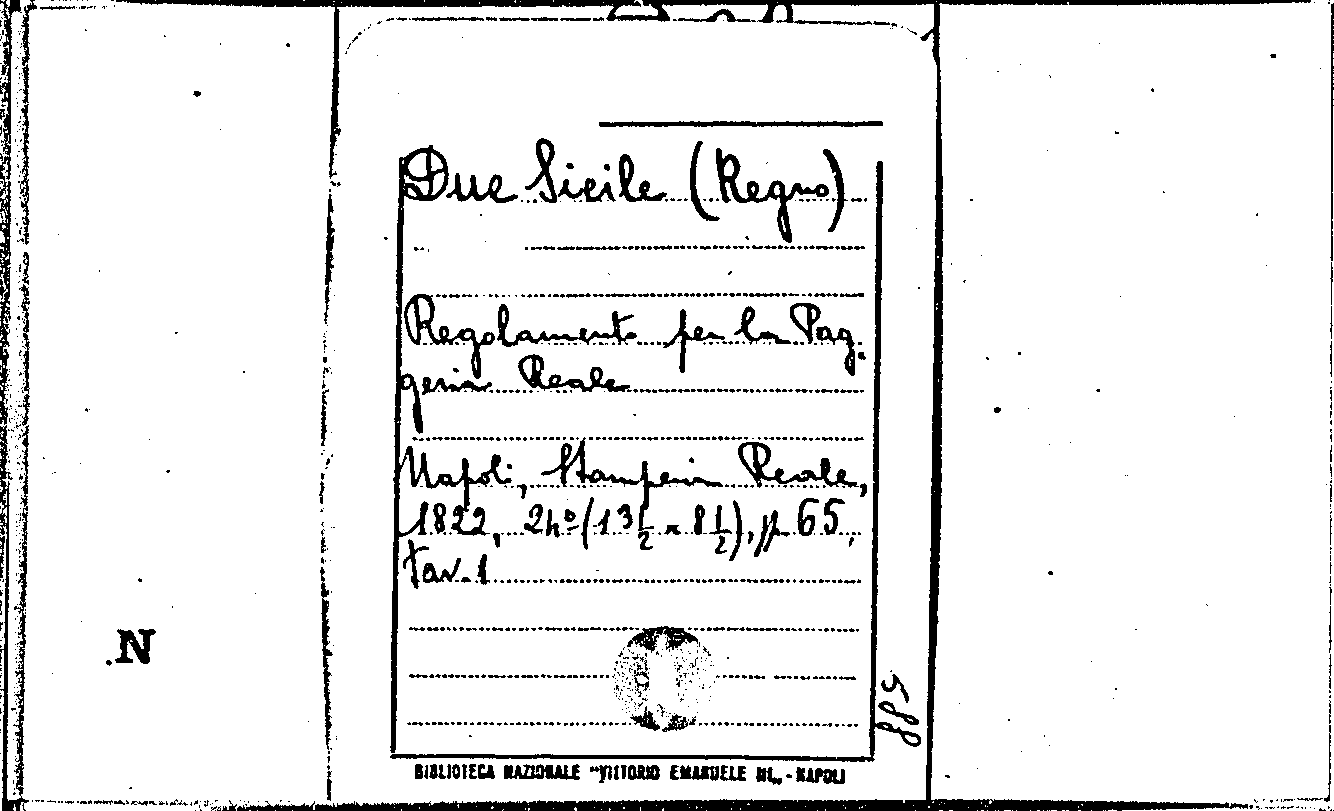 Due Sicilie (Regno)
Regolamento per la Pag-
geria Reale
Napoli, Stamperia Reale,
1822, 24º (13 1/2 x 8 1/2), pp. 65,
tav. 1
N
588
BIBLIOTECA NAZIONALE "VITTORIO EMANUELE III„ - NAPOLI